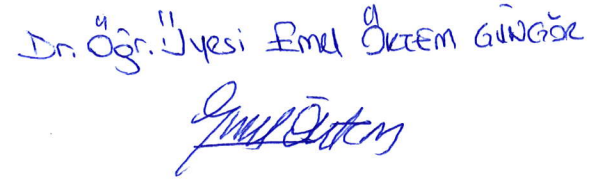 Dr. Öğr. Üyesi Emel ÖKTEM GÜNGÖR
Emel Öktem